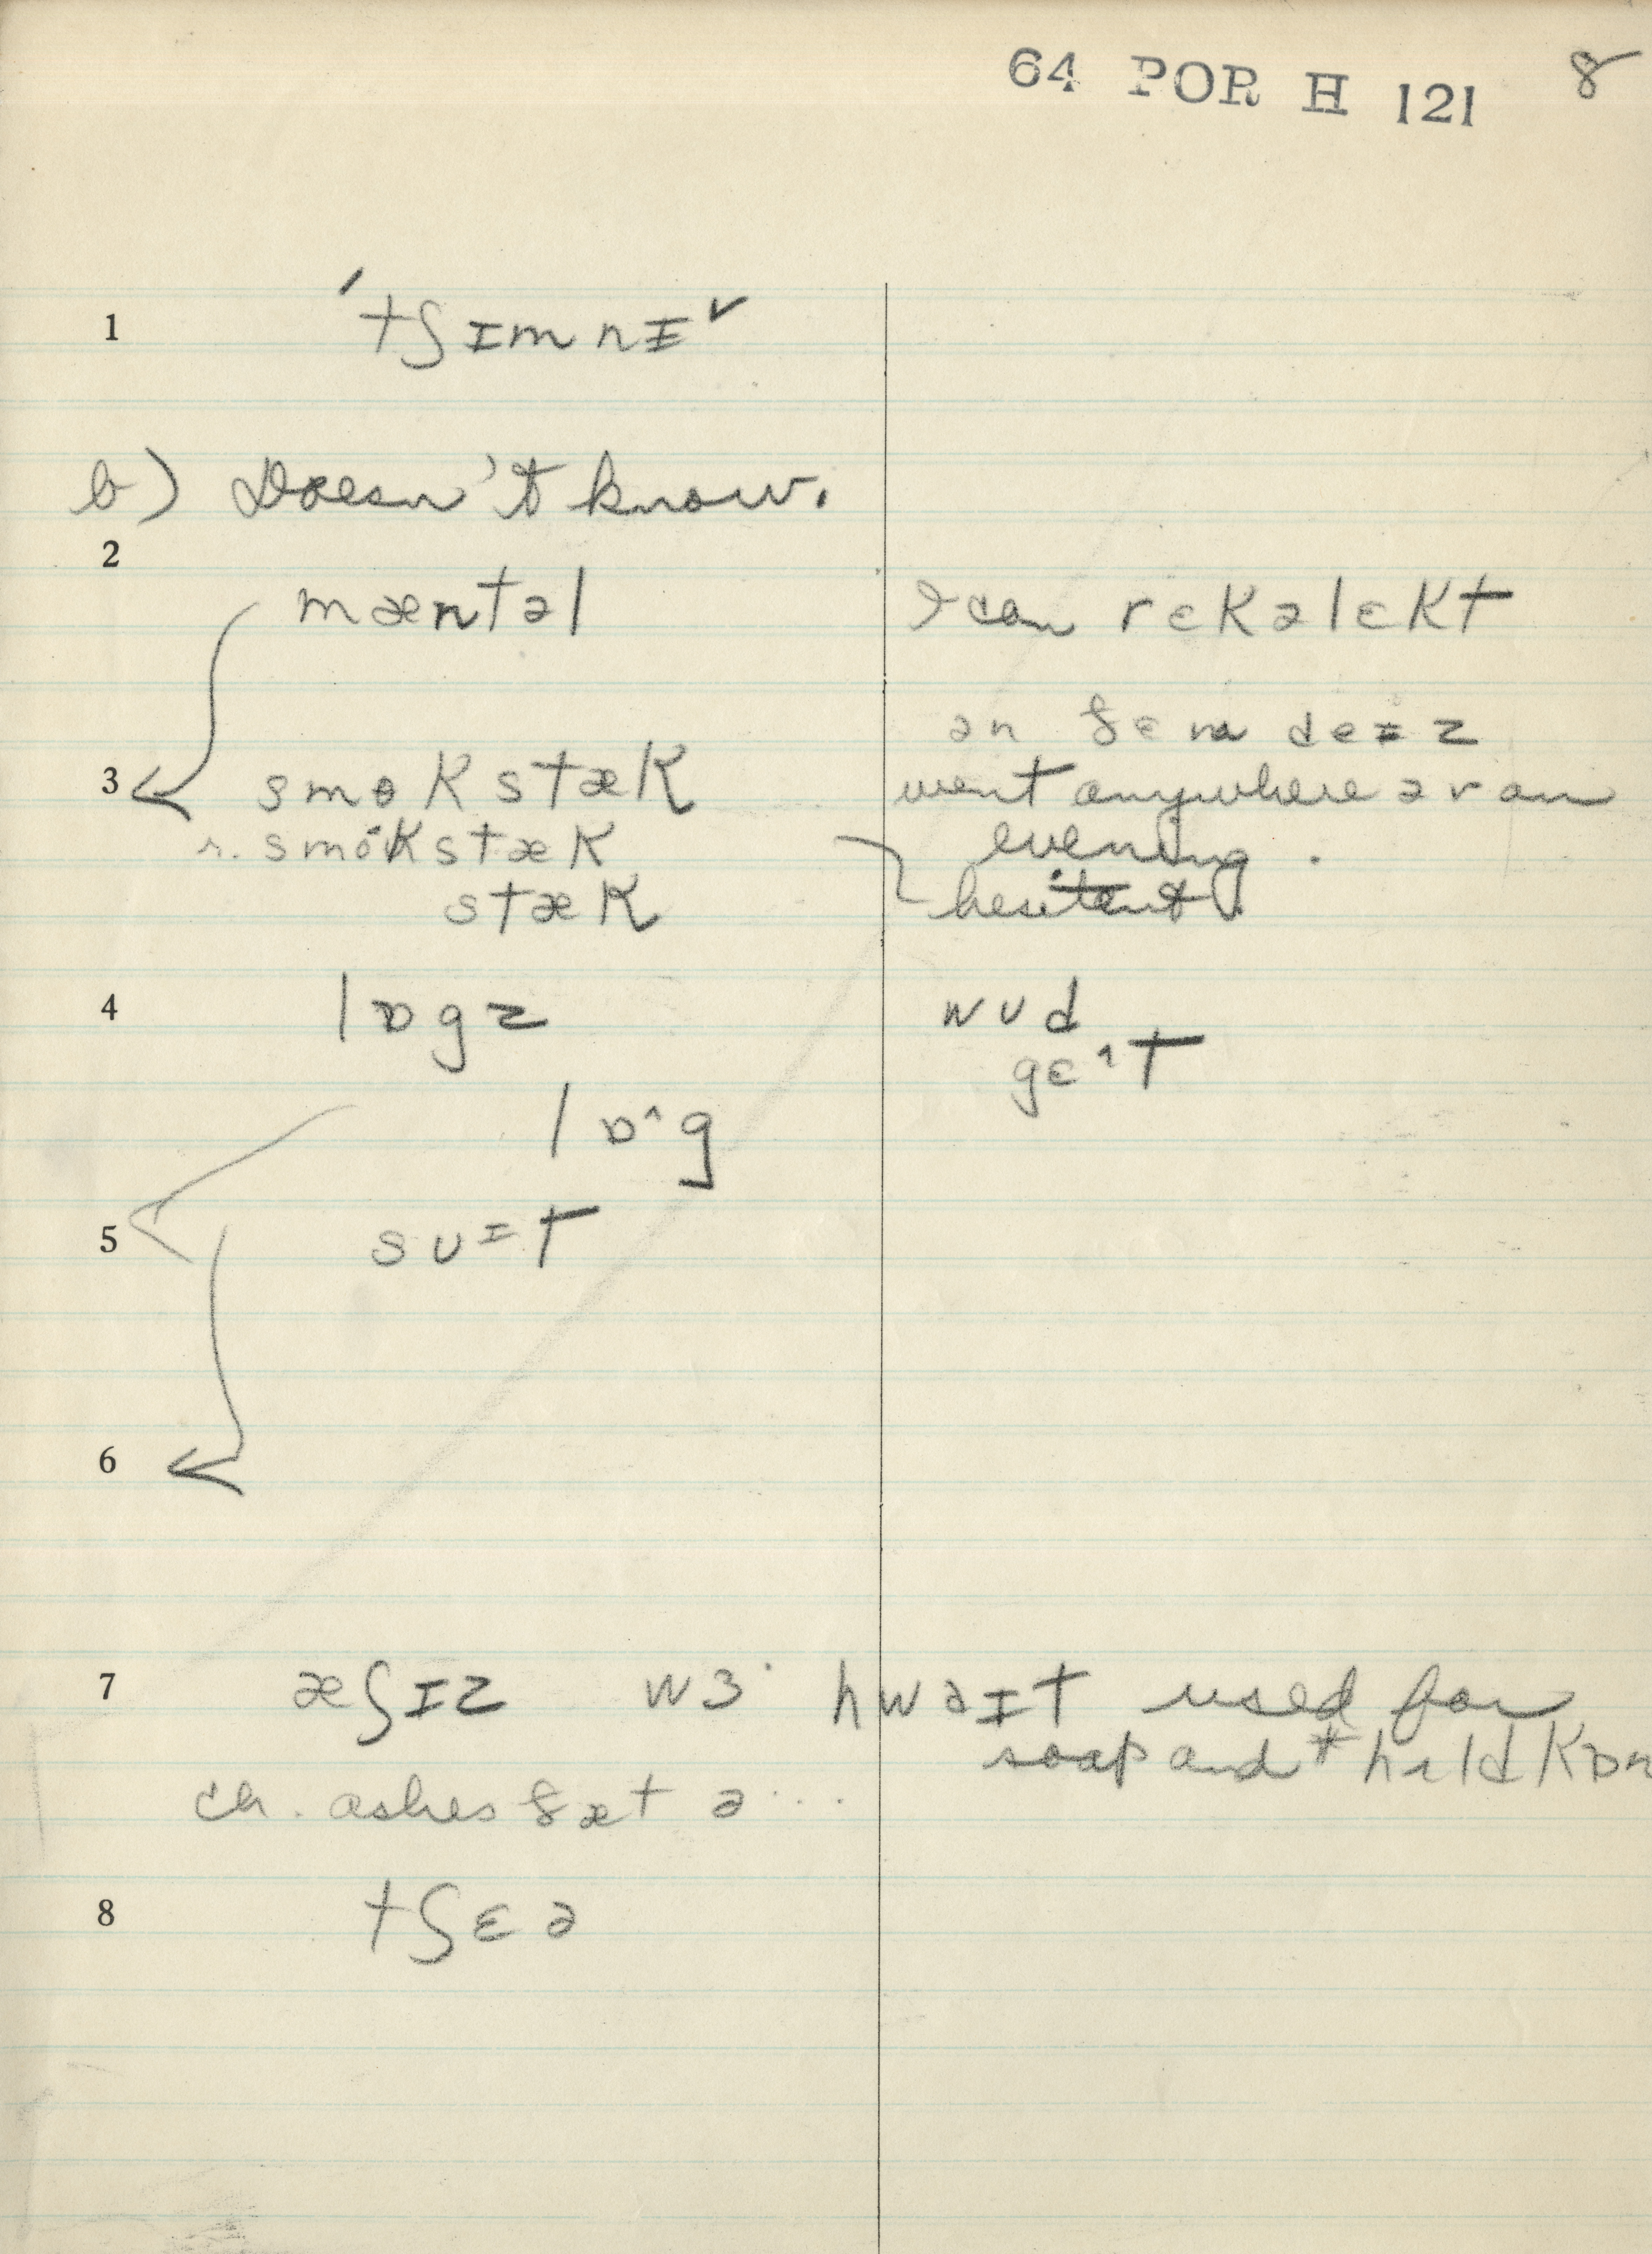 64 POR H 121 8
1 ˈtʃɪmnɪ˅
b) Doesn't know.
2
mæntəl I can rɛkəlɛkt
ən ðɛm deɪz
3 smokstæk went anywhere əv an
r. smokstæk evening.
stæk hesitant
4 lɒgz wʊd
gɛ^t
lɒ^g
5 sʊɪt
6
7 æʃɪz wɜ hwəɪt used for
soap and hʌld kɒn
ch. ashes ðæt ə...
8 tʃɛə